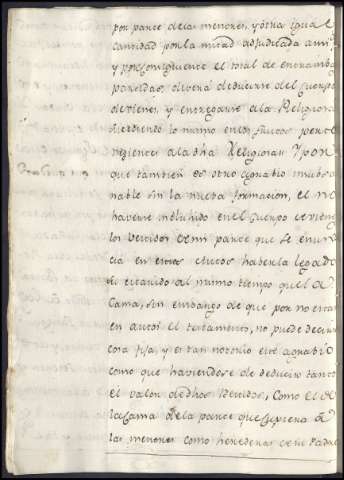 por parte de las menores, y otra igual
cantidad por la mitad adjudicada a mi
y por consiguiente el total de entrambas
partidas, devera deducirse del Cuerpo
de vienes, y entregarse a la Religiosa
diciendo lo mismo en los frutos perte
neziente a la dha Religiosa Ypor
que tambien es otro agravio
sin la nueva formacion, el no
haverse incluhido en el Cuerpo de vienes
los vestidos de mi parte que se
en haberla legado
al mismo tiempo que el de
Cama, sin embargo de que por no estar
en autos el testamento, no puede decirse
cosa fija, y es tan notorio este agravio
como que haviendose de deducir tanto
el valor de dhos Vestidos, Como el de
la Cama de la parte que
las menores como herederas de su Padre